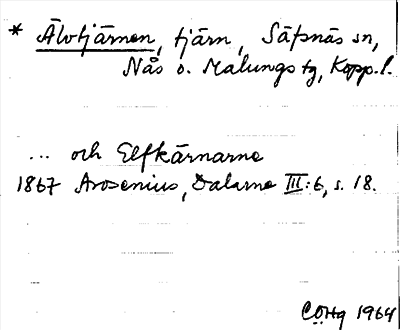 * Älvtjärnen, tjärn, Säfsnäs sn,
Nås o. Malungs tg, Kopp.l.
... och Elfkärnarne
1867 Arosenius, Dalarne III:6, s. 18.
COHg 1964